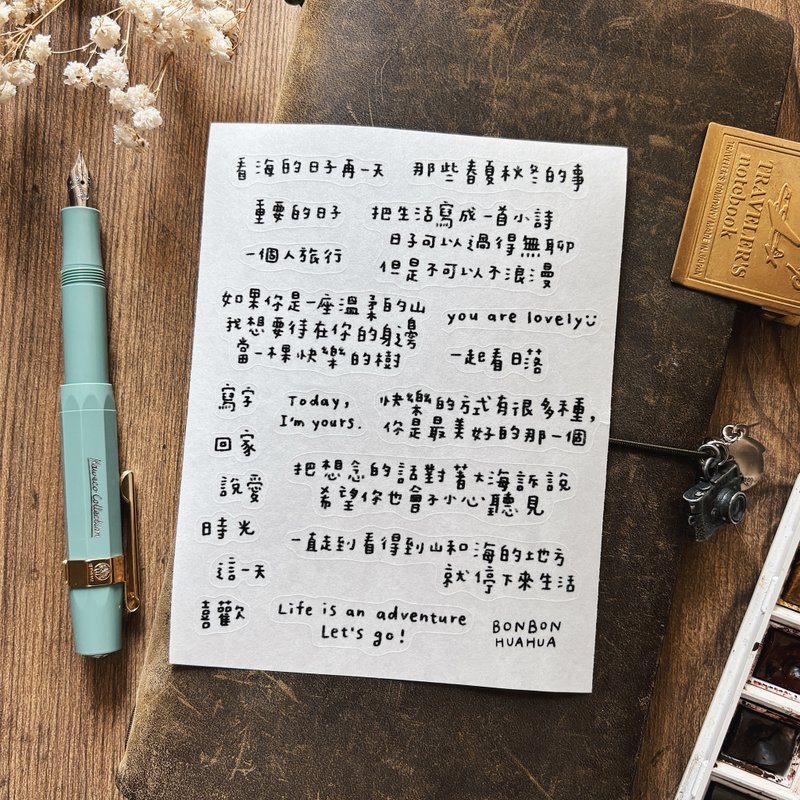 看海的日子再一天
那些春夏秋冬的事
重要的日子
把生活寫成一首小詩
日子可以過得無聊
但是不可以不浪漫
一個人旅行
如果你是一座溫柔的山
我想要待在你的身邊
當一棵快樂的樹
you are lovely
一起看日落
寫字
Today,
I'm yours.
快樂的方式有很多種，
你是最美好的那一個
回家
說愛
把想念的話對著大海訴說
希望你也會不小心聽見
時光
一直走到看得到山和海的地方
就停下來生活
這一天
喜歡
Life is an adventure
Let's go!
BONBON
HUAHUA
Kaweco Collection
TRAVELER'S
notebook